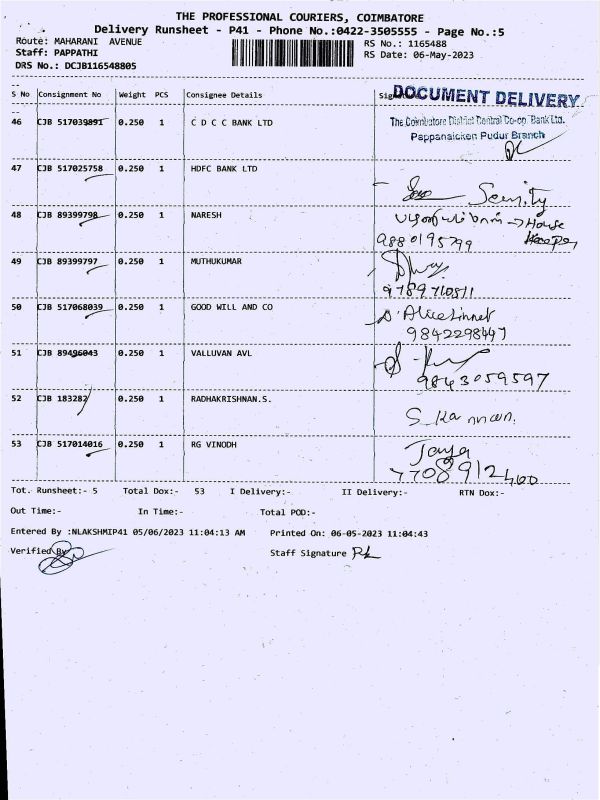 THE PROFESSIONAL COURIERS, COIMBATORE
Delivery Runsheet - P41 - Phone No.:0422-3505555 - Page No.:5
Route: MAHARANI AVENUE
RS No.: 1165488
Staff: PAPPATHI
RS Date: 06-May-2023
DRS No.: DCJB116548805
S No Consignment No Weight PCS Consignee Details Signature
DOCUMENT DELIVERY
46 CJB 517039891 0.250 1 C D C C BANK LTD
The Coimbatore District Central Co-op. Bank Ltd.
Pappanaicken Pudur Branch
47 CJB 517025758 0.250 1 HDFC BANK LTD
Security
48 CJB 89399798 0.250 1 NARESH
→ House
Keeper
9880195799
49 CJB 89399797 0.250 1 MUTHUKUMAR
9789710811
50 CJB 517068039 0.250 1 GOOD WILL AND CO
9842298447
51 CJB 89496043 0.250 1 VALLUVAN AVL
9843059597
52 CJB 183282 0.250 1 RADHAKRISHNAN.S.
S. Kannan.
53 CJB 517014016 0.250 1 RG VINODH
Jaya
7708912400
Tot. Runsheet:- 5 Total Dox:- 53 I Delivery:- II Delivery:- RTN Dox:-
Out Time:- In Time:- Total POD:-
Entered By :NLAKSHMIP41 05/06/2023 11:04:13 AM Printed On: 06-05-2023 11:04:43
Verified By Staff Signature